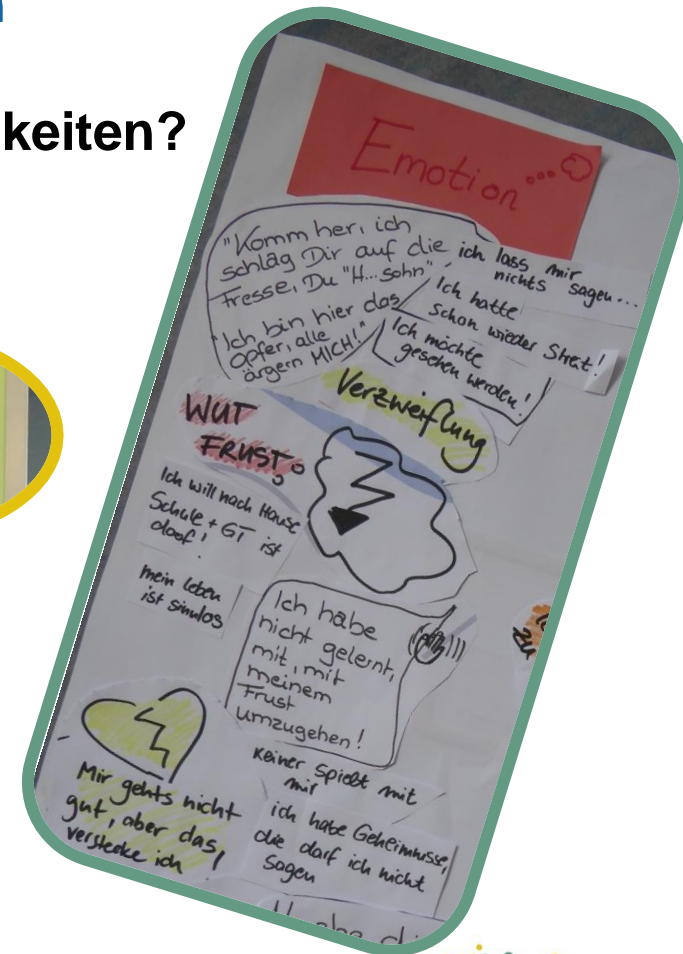 keiten?
Emotion
"Komm her, ich
schlag Dir auf die
Fresse, Du "H...sohn"
"Ich bin hier das
Opfer, alle
ärgern MICH!"
ich lass mir
nichts sagen...
Ich hatte
schon wieder Streit!
Ich möchte
gesehen werden!
Verzweiflung
WUT
FRUST
Ich will nach Hause
Schule + GT ist
doof!
mein Leben
ist sinnlos
Ich habe
nicht gelernt,
mit, mit
meinem
Frust
umzugehen!
Mir gehts nicht
gut, aber das
verstecke ich
Keiner spielt mit
mir
ich habe Geheimnisse,
die darf ich nicht
sagen